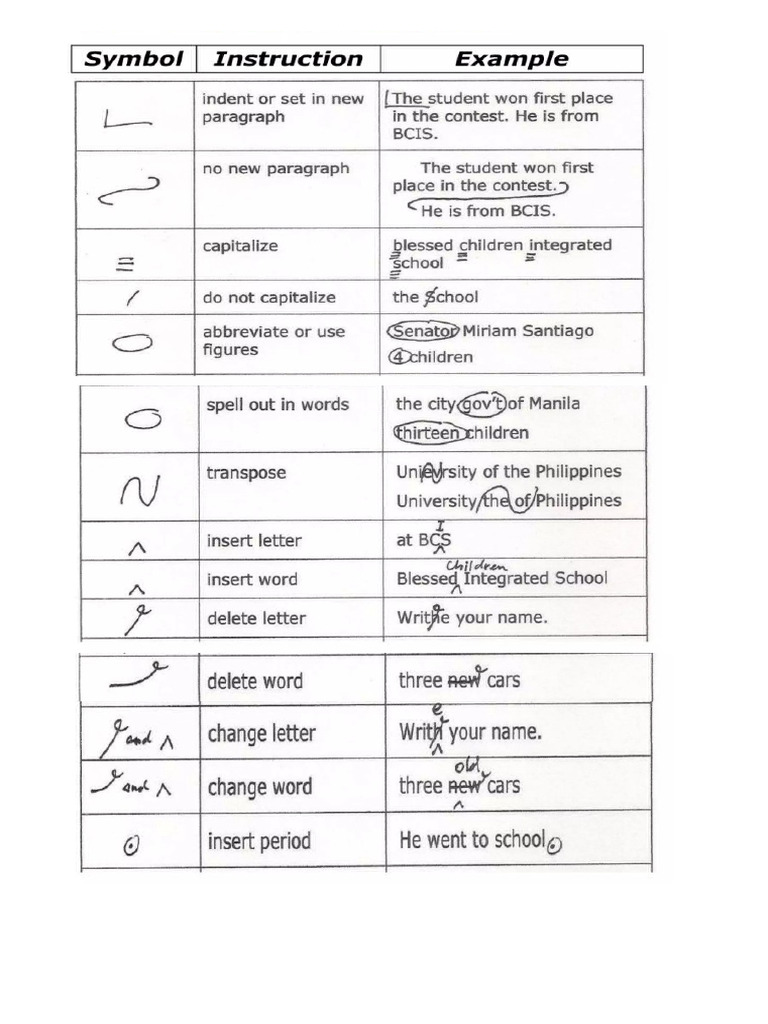 Symbol Instruction Example
indent or set in new The student won first place
paragraph in the contest. He is from
BCIS.
no new paragraph The student won first
place in the contest.
He is from BCIS.
capitalize blessed children integrated
school
do not capitalize the School
abbreviate or use Senator Miriam Santiago
figures
4 children
spell out in words the city gov't of Manila
thirteen children
transpose Unievrsity of the Philippines
University the of Philippines
I
insert letter at BCS
Children
insert word Blessed Integrated School
delete letter Writhe your name.
delete word three new cars
e
and change letter Writh your name.
old
and change word three new cars
insert period He went to school